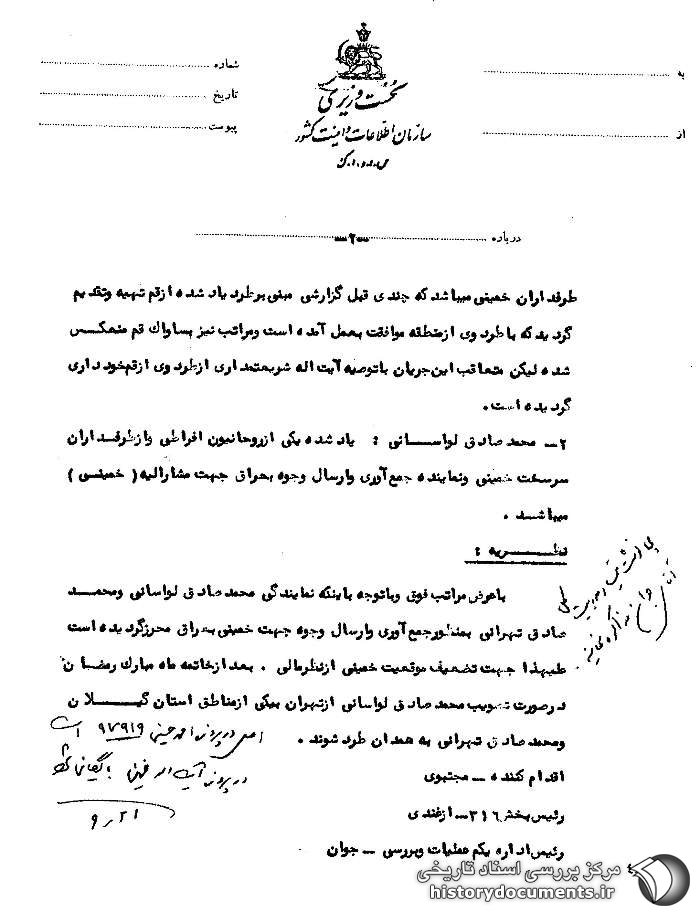 به
از
شماره
تاریخ
پیوست
نخست وزیری
سازمان اطلاعات و امنیت کشور
س.ا.و.ا.ک
درباره
-۲-
طرفداران خمینی میباشد که چندی قبل گزارشی مبنی برطرد یاد شده ازقم تهیه وتقدیم
گردیدکه باطرد وی ازمنطقه موافقت بعمل آمده است ومراتب نیز بساواك قم منعکس
شده لیکن متعاقب این جریان باتوصیه آیت اله شریعتمداری ازطرد وی ازقم خودداری
گردیده است.
۲- محمد صادق لواسانی : یاد شده یکی ازروحانیون افراطی وازطرفداران
سرسخت خمینی ونماینده جمع آوری وارسال وجوه بعراق جهت مشارالیه ( خمینی )
میباشد .
نظریه :
باعرض مراتب فوق وباتوجه باینکه نمایندگی محمد صادق لواسانی ومحمد
صادق تهرانی بمنظورجمع آوری وارسال وجوه جهت خمینی بعراق محرزگردیده است
علیهذا جهت تضعیف موقعیت خمینی ازنظرمالی . بعد ازخاتمه ماه مبارك رمضان
درصورت تصویب محمد صادق لواسانی ازتهران بیکی ازمناطق استان گیلان
ومحمد صادق تهرانی به همدان طرد شوند .
اصل در پرونده احمد خمینی ۹۷۹۱۹ است
در پرونده آیت اله خمینی بایگانی شود
۹/۲۱
اقدام کننده - مجتبوی
رئیس بخش ۳۱۶- ازغندی
رئیس اداره یکم عملیات وبررسی - جوان
مرکز بررسی اسناد تاریخی
historydocuments.ir